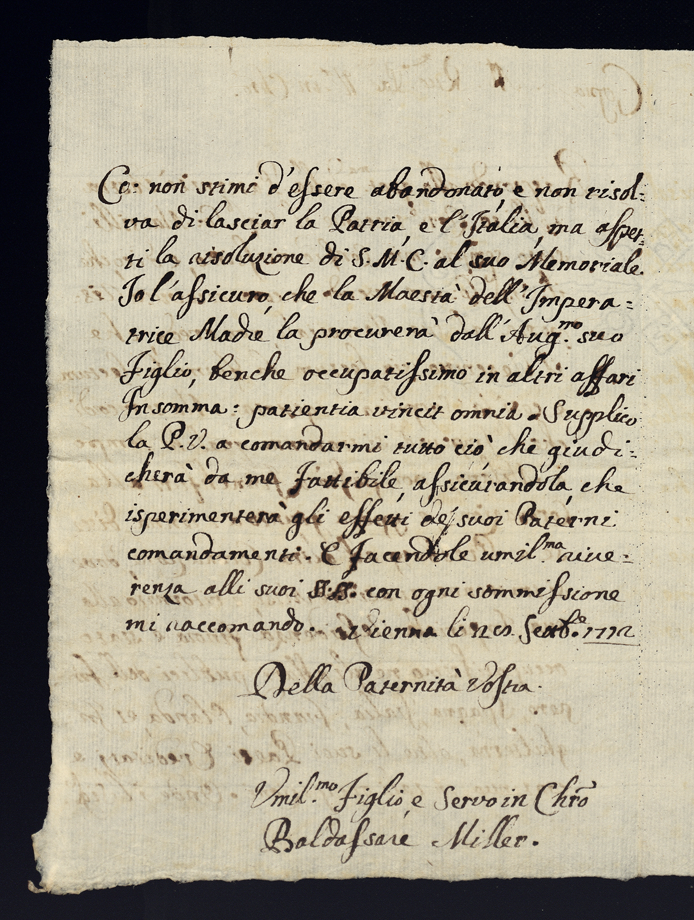 Ca: non stimi d'essere abandonato, e non risol-
va di lasciar la Patria, e l'Italia, ma aspet-
ti la risoluzione di S. M. C. al suo Memoriale.
Io l'assicuro, che la Maestà dell'Impera-
trice Madre la procurerà dall'Aug.mo suo
Figlio, benche occupatissimo in altri affari
Insomma: patientia vincit omnia. Supplico
la P. V. a comandarmi tutto ciò che giudi-
cherà da me Fattibile, assicurandola, che
isperimenterà gli effetti de suoi Paterni
comandamenti. E Facendole umil.ma rive-
renza alli suoi SS. SS. con ogni sommissione
mi raccomando. Vienna li 20 Settb.e 1772
Della Paternità Vostra.
Vmil.mo Figlio, e Servo in Chro
Baldassare Miller.